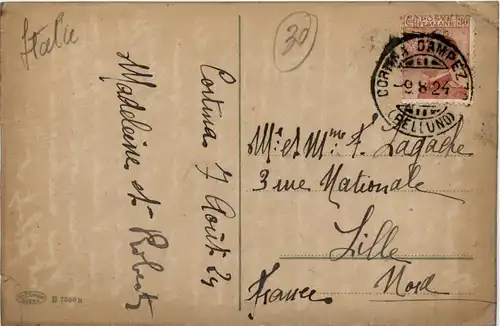 Italie
30
Cortina 7 Août 24
Madeleine et Robert
CORTINA D'AMPEZZO
9.8.24
(BELLUNO)
Mr et Mme F. Lagache
3 rue Nationale
Lille
Nord
France